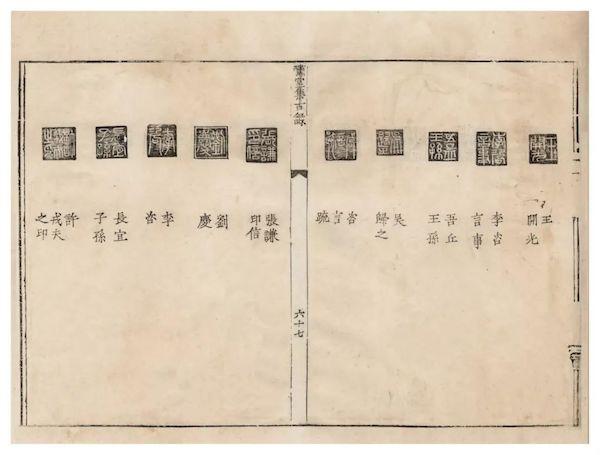 王
開光
李
言事
吾丘
王孫
吳
歸之
言
疏
嘯堂集古錄
六十七
張謙
印信
劉
慶
李
長宜
子孫
許
戎夫
之印